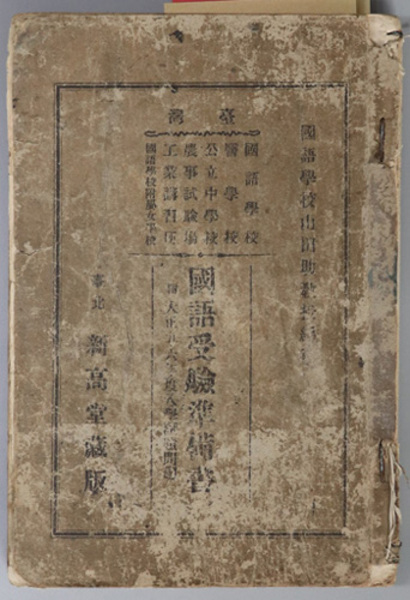 國語學校山田助教授編
臺灣
國語學校
醫學校
公立中學校
農事試驗場
工業講習所
國語學校附屬女學校
國語受驗準備書
附大正五六年度入學試驗問題
臺北
新高堂藏版